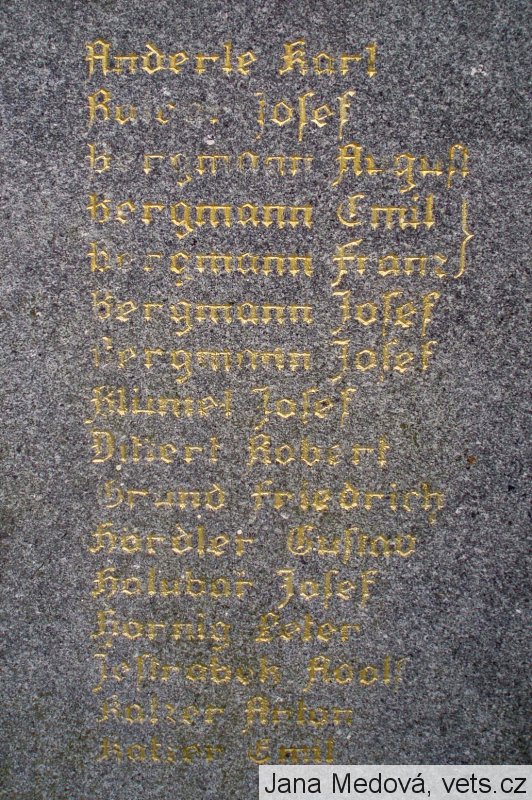 Anderle Karl
Josef
Bergmann August
Bergmann Emil
Bergmann Franz
Bergmann Josef
Bergmann Josef
Blümel Josef
Dittert Robert
Grund Friedrich
Hördler Gustav
Holubař Josef
Hornig Peter
Jestřabek Adolf
Katzer Anton
Katzer Emil
Jana Medová, vets.cz